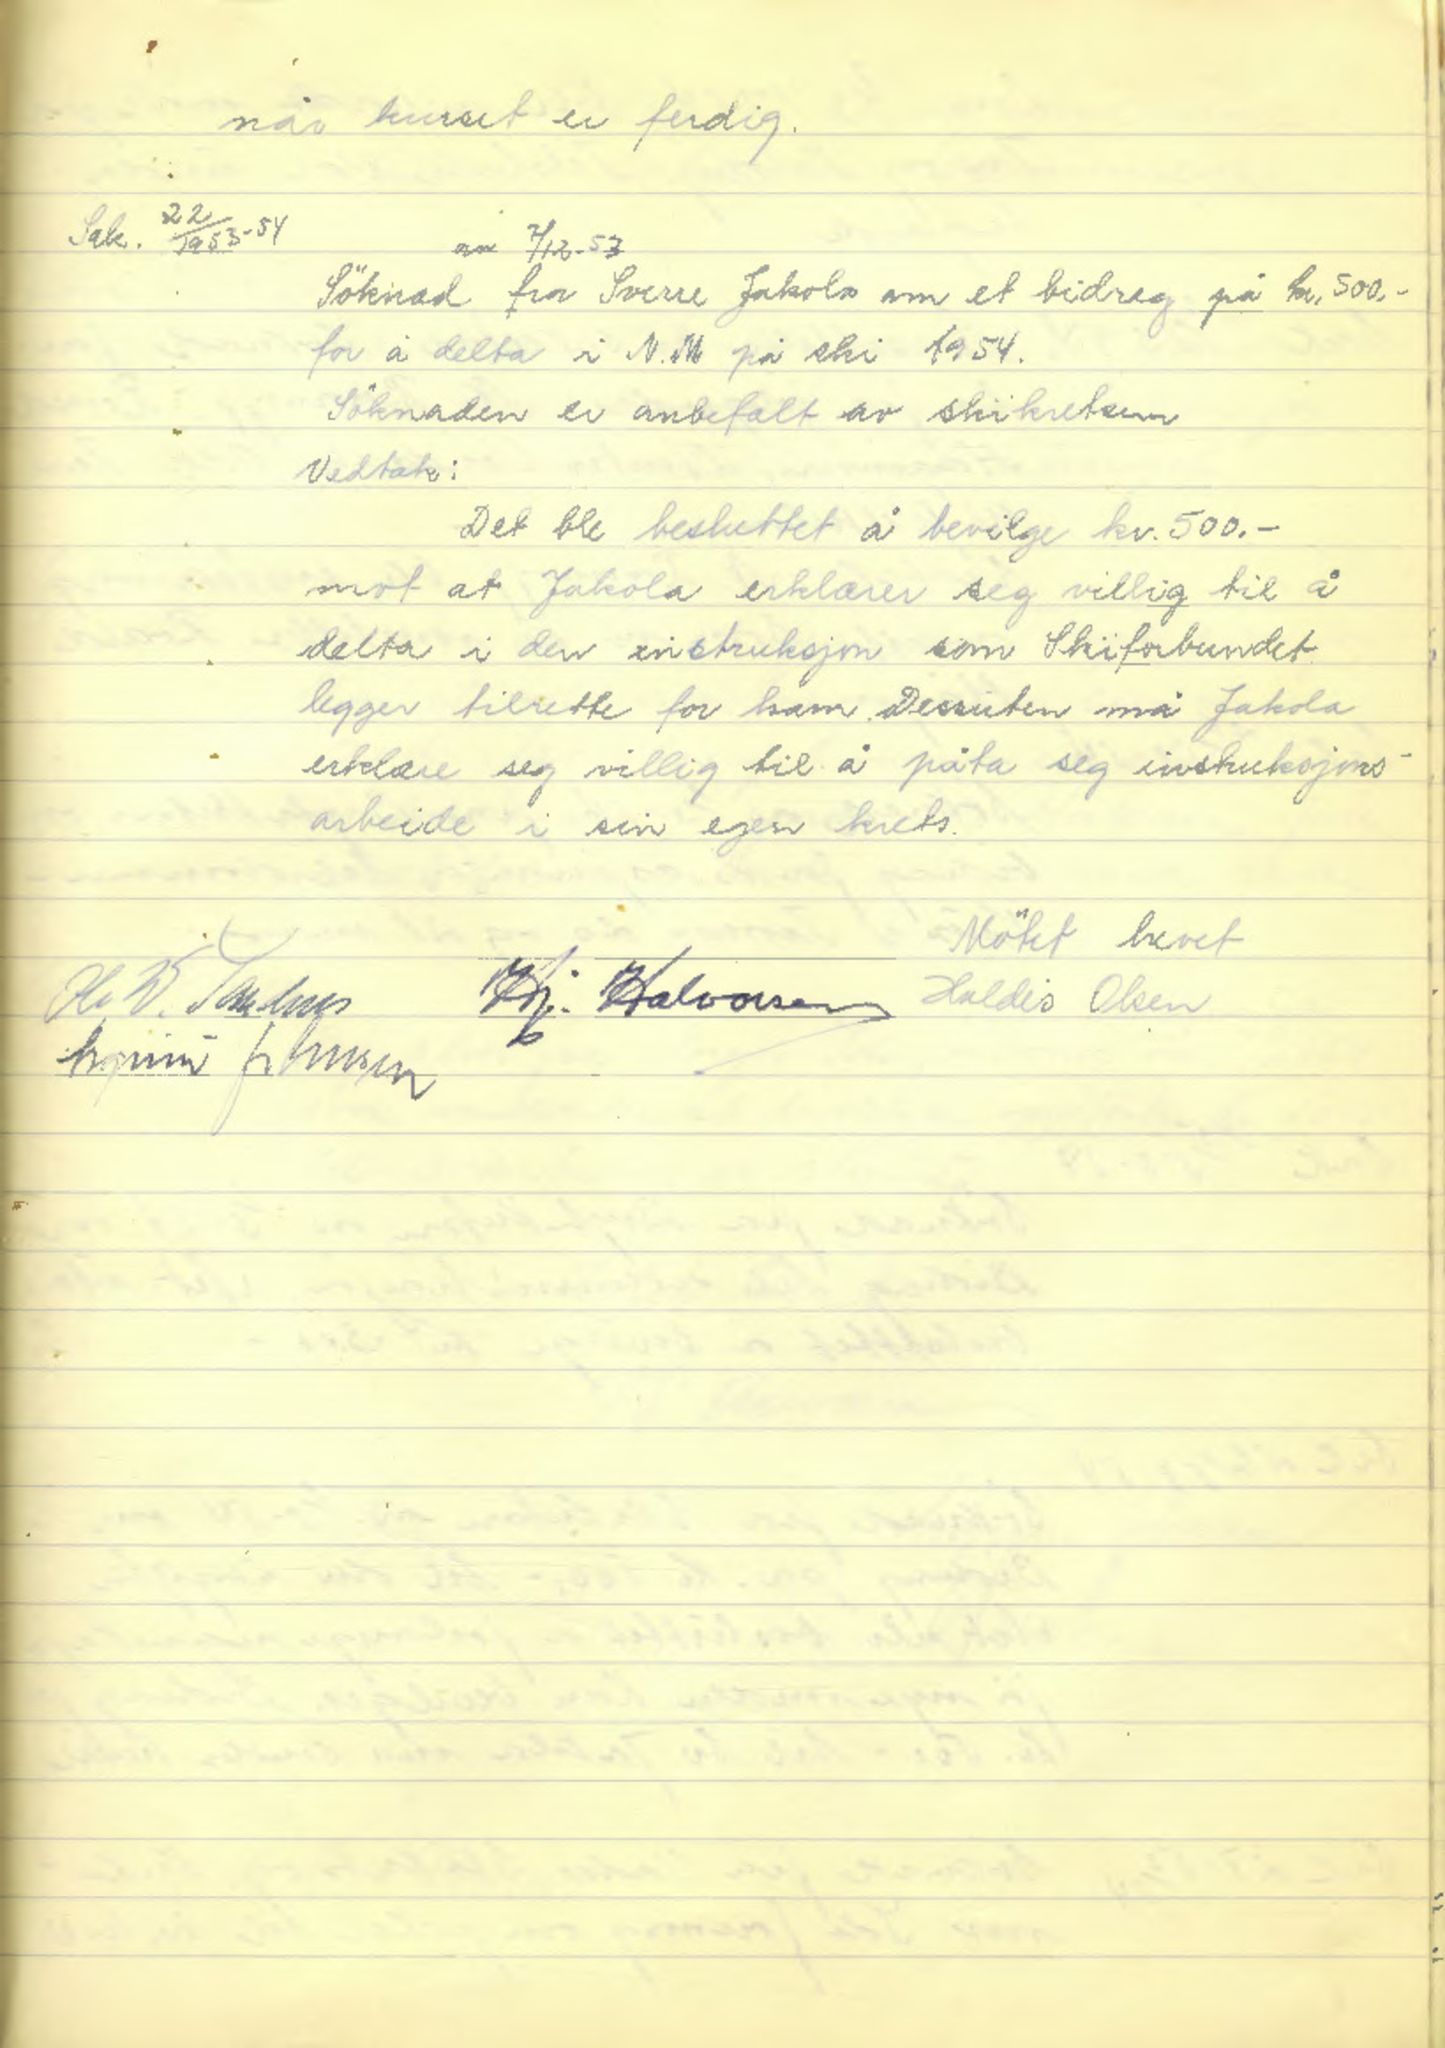 når kurset er ferdig.
Sak. 22/1953-54
av 7/12-53
Söknad fra Sverre Jakola om et bidrag på kr. 500.-
for å delta i N.M på ski 1954.
Söknaden er anbefalt av skikretsen
Vedtak:
Det ble besluttet å bevilge kr. 500.-
mot at Jakola erklærer seg villig til å
delta i den instruksjon som Skiforbundet
legger tilrette for ham. Dessuten må Jakola
erklære seg villig til å påta seg instruksjons-
arbeide i sin egen krets.
Mötet hevet
Hj. Halvorsen
Haldis Olsen